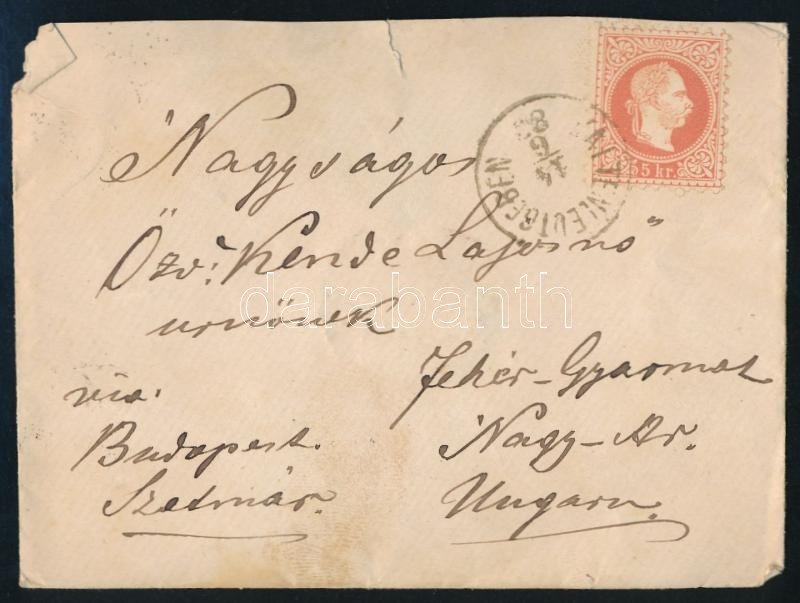 Nagyságos
Özv: Kende Lajosnő
urnőnek
via.
Budapest.
Szatmár.
Fehér-Gyarmat
Nagy-Ar.
Ungarn.
5 kr.
14
5
darabanth